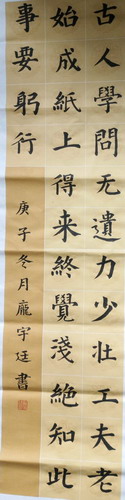 古人學問无遺力少壯工夫老
始成紙上得来終覺淺絕知此
事要躬行
庚子冬月龐宇廷書